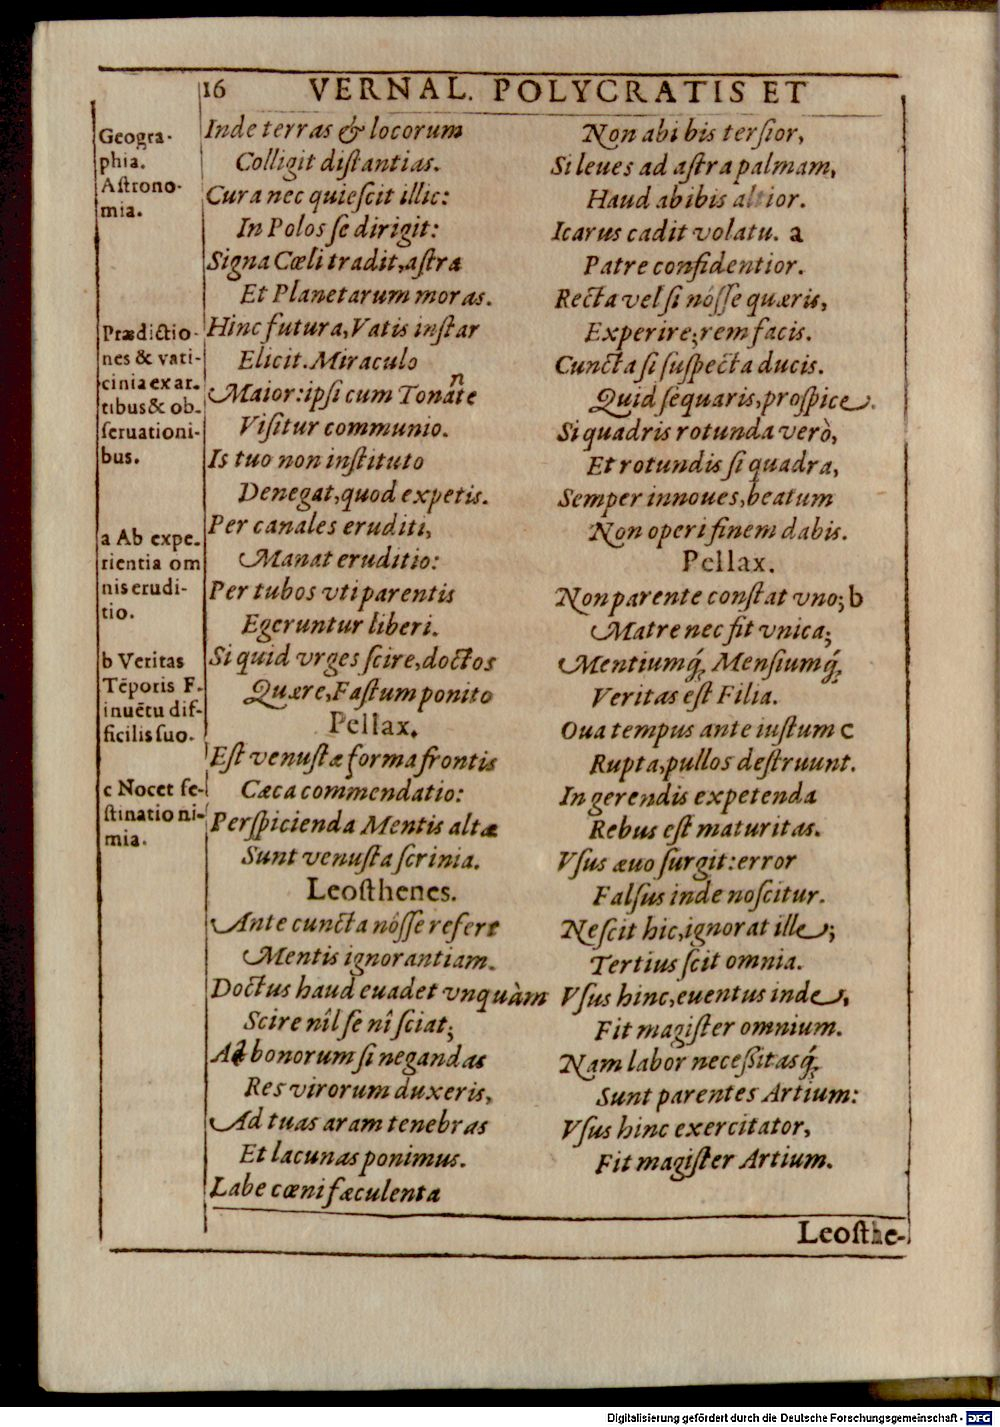 16 VERNAL. POLYCRATIS ET
Geogra-
phia.
Astrono-
mia.
Prædictio-
nes & vati-
cinia ex ar-
tibus & ob-
seruationi-
bus.
a Ab expe-
rientia om
nis erudi-
tio.
b Veritas
Tẽporis F.
inuẽtu dif-
ficilis suo.
c Nocet fe-
stinatio ni-
mia.
Inde terras & locorum
Colligit distantias.
Cura nec quiescit illic:
In Polos se dirigit:
Signa Cœli tradit, astra
Et Planetarum moras.
Hinc futura, Vatis instar
Elicit. Miraculo
Maior: ipsi cum Tonãte
n
Visitur communio.
Is tuo non instituto
Denegat, quod expetis.
Per canales eruditi,
Manat eruditio:
Per tubos vti parentis
Egeruntur liberi.
Si quid vrges scire, doctos
Quære, Fastum ponito
Pellax.
Est venustæ forma frontis
Cæca commendatio:
Perspicienda Mentis altæ
Sunt venusta scrinia.
Leosthenes.
Ante cuncta nósse refert
Mentis ignorantiam.
Doctus haud euadet vnquàm
Scire nîl se nî sciat;
Ad bonorum si negandas
Res virorum duxeris,
Ad tuas aram tenebras
Et lacunas ponimus.
Labe cœni fæculenta
Non abibis tersior,
Si leues ad astra palmam,
Haud abibis altior.
Icarus cadit volatu. a
Patre confidentior.
Recta vel si nósse quæris,
Experire; rem facis.
Cuncta si suspecta ducis.
Quid sequaris, prospice.
Si quadris rotunda verò,
Et rotundis si quadra,
Semper innoues, beatum
Non operi finem dabis.
Pellax.
Non parente constat vno; b
Matre nec fit vnica;
Mentiumq́; Mensiumq́;
Veritas est Filia.
Oua tempus ante iustum c
Rupta, pullos destruunt.
In gerendis expetenda
Rebus est maturitas.
Vsus æuo surgit: error
Falsus inde noscitur.
Nescit hic, ignorat ille;
Tertius scit omnia.
Vsus hinc, euentus inde,
Fit magister omnium.
Nam labor necessitasq́;
Sunt parentes Artium:
Vsus hinc exercitator,
Fit magister Artium.
Leosthe-
Digitalisierung gefördert durch die Deutsche Forschungsgemeinschaft - DFG